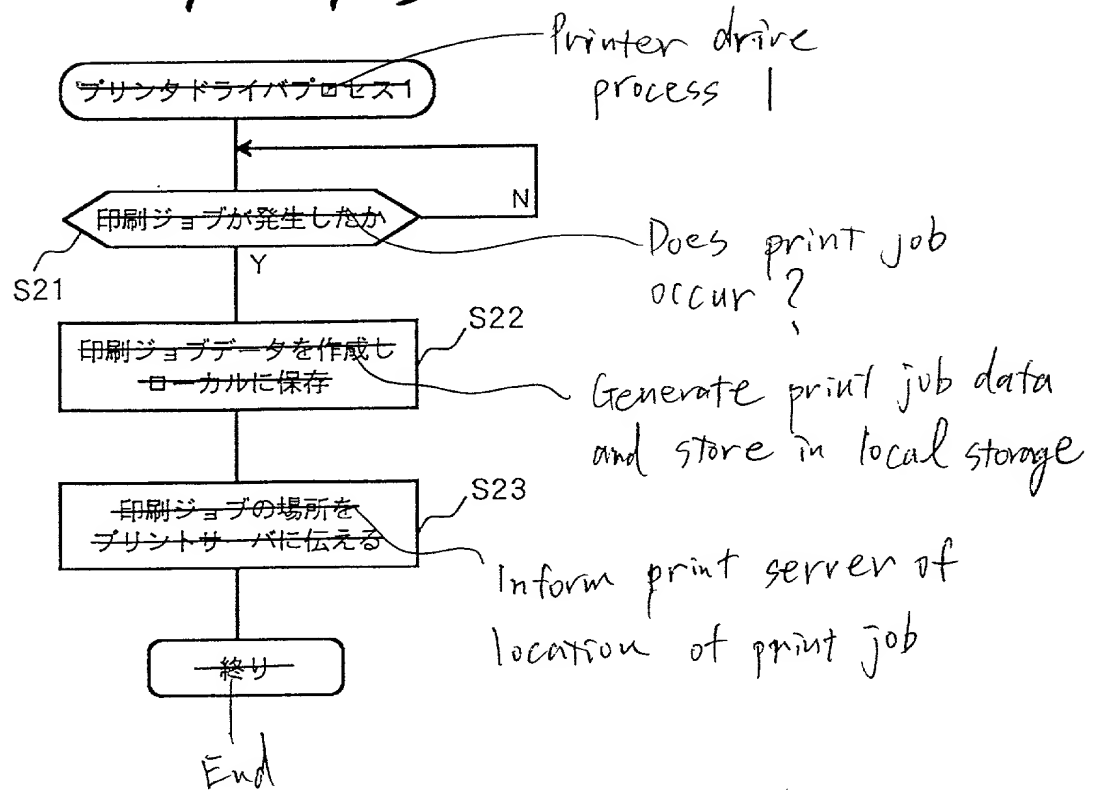 Printer drive
process 1
プリンタドライバプロセス1
N
印刷ジョブが発生したか
Does print job
occur?
S21
Y
S22
印刷ジョブデータを作成し
ローカルに保存
Generate print job data
and store in local storage
S23
印刷ジョブの場所を
プリントサーバに伝える
Inform print server of
location of print job
終り
End